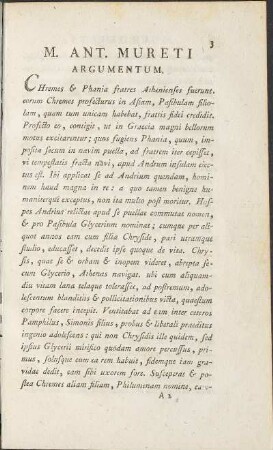 3
M. ANT. MURETI
ARGUMENTUM.
CHremes & Phania fratres Athenienses fuerunt.
eorum Chremes profecturus in Asiam, Pasibulam filio-
lam, quam tum unicam habebat, fratris fidei credidit.
Profecto eo, contigit, ut in Graecia magni bellorum
motus excitarentur; quos fugiens Phania, quum, im-
posita secum in navim puella, ad fratrem iter cepisset,
vi tempestatis fracta navi, apud Andrum insulam ejec-
tus est. Ibi applicat se ad Andrium quendam, homi-
nem haud magna in re: a quo tamen benigne hu-
maniterque exceptus, non ita multo post moritur. Hos-
pes Andrius relictae apud se puellae commutat nomen,
& pro Pasibula Glycerium nominat; cumque per ali-
quot annos eam cum filia Chryside, pari utramque
studio, educasset, decedit ipse quoque de vita. Chry-
sis, quae se & orbam & inopem videret, abrepta se-
cum Glycerio, Athenas navigat. ubi cum aliquam-
diu vitam lana telaque tolerasset, ad postremum, ado-
lescentum blanditiis & pollicitationibus victa, quaestum
corpore facere incepit. Ventitabat ad eam inter ceteros
Pamphilus, Simonis filius, probus & liberali praeditus
ingenio adolescens: qui non Chrysidis ille quidem, sed
ipsius Glycerii mirifico quodam amore percussus, pri-
mus, solusque cum ea rem habuit, fidemque jam gra-
vidae dedit, eam sibi uxorem fore. Susceperat & po-
stea Chremes aliam filiam, Philumenam nomine, ea-
A 2